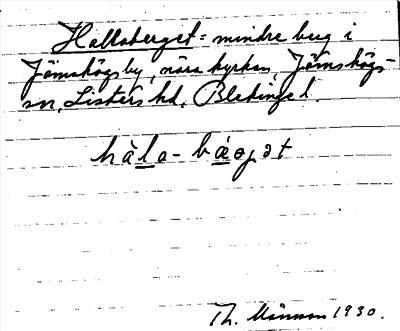 Hallaberget = mindre berg i
Jämshögsby, nära kyrkan, Jämshögs-
sn, Listers hd, Blekinge l.
hàla - bæ̀rjət
Th. Månsson 1930.